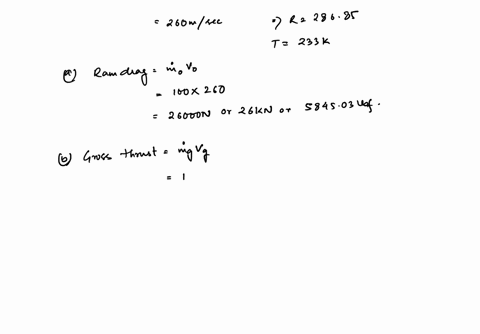 = 260m/sec ∵) R = 286.85
T = 233K
(a) Ram drag = ṁ₀ V₀
= 100 × 260
= 26000N or 26KN or 5845.03
(b) Gross thrust = ṁg Vg
= 1